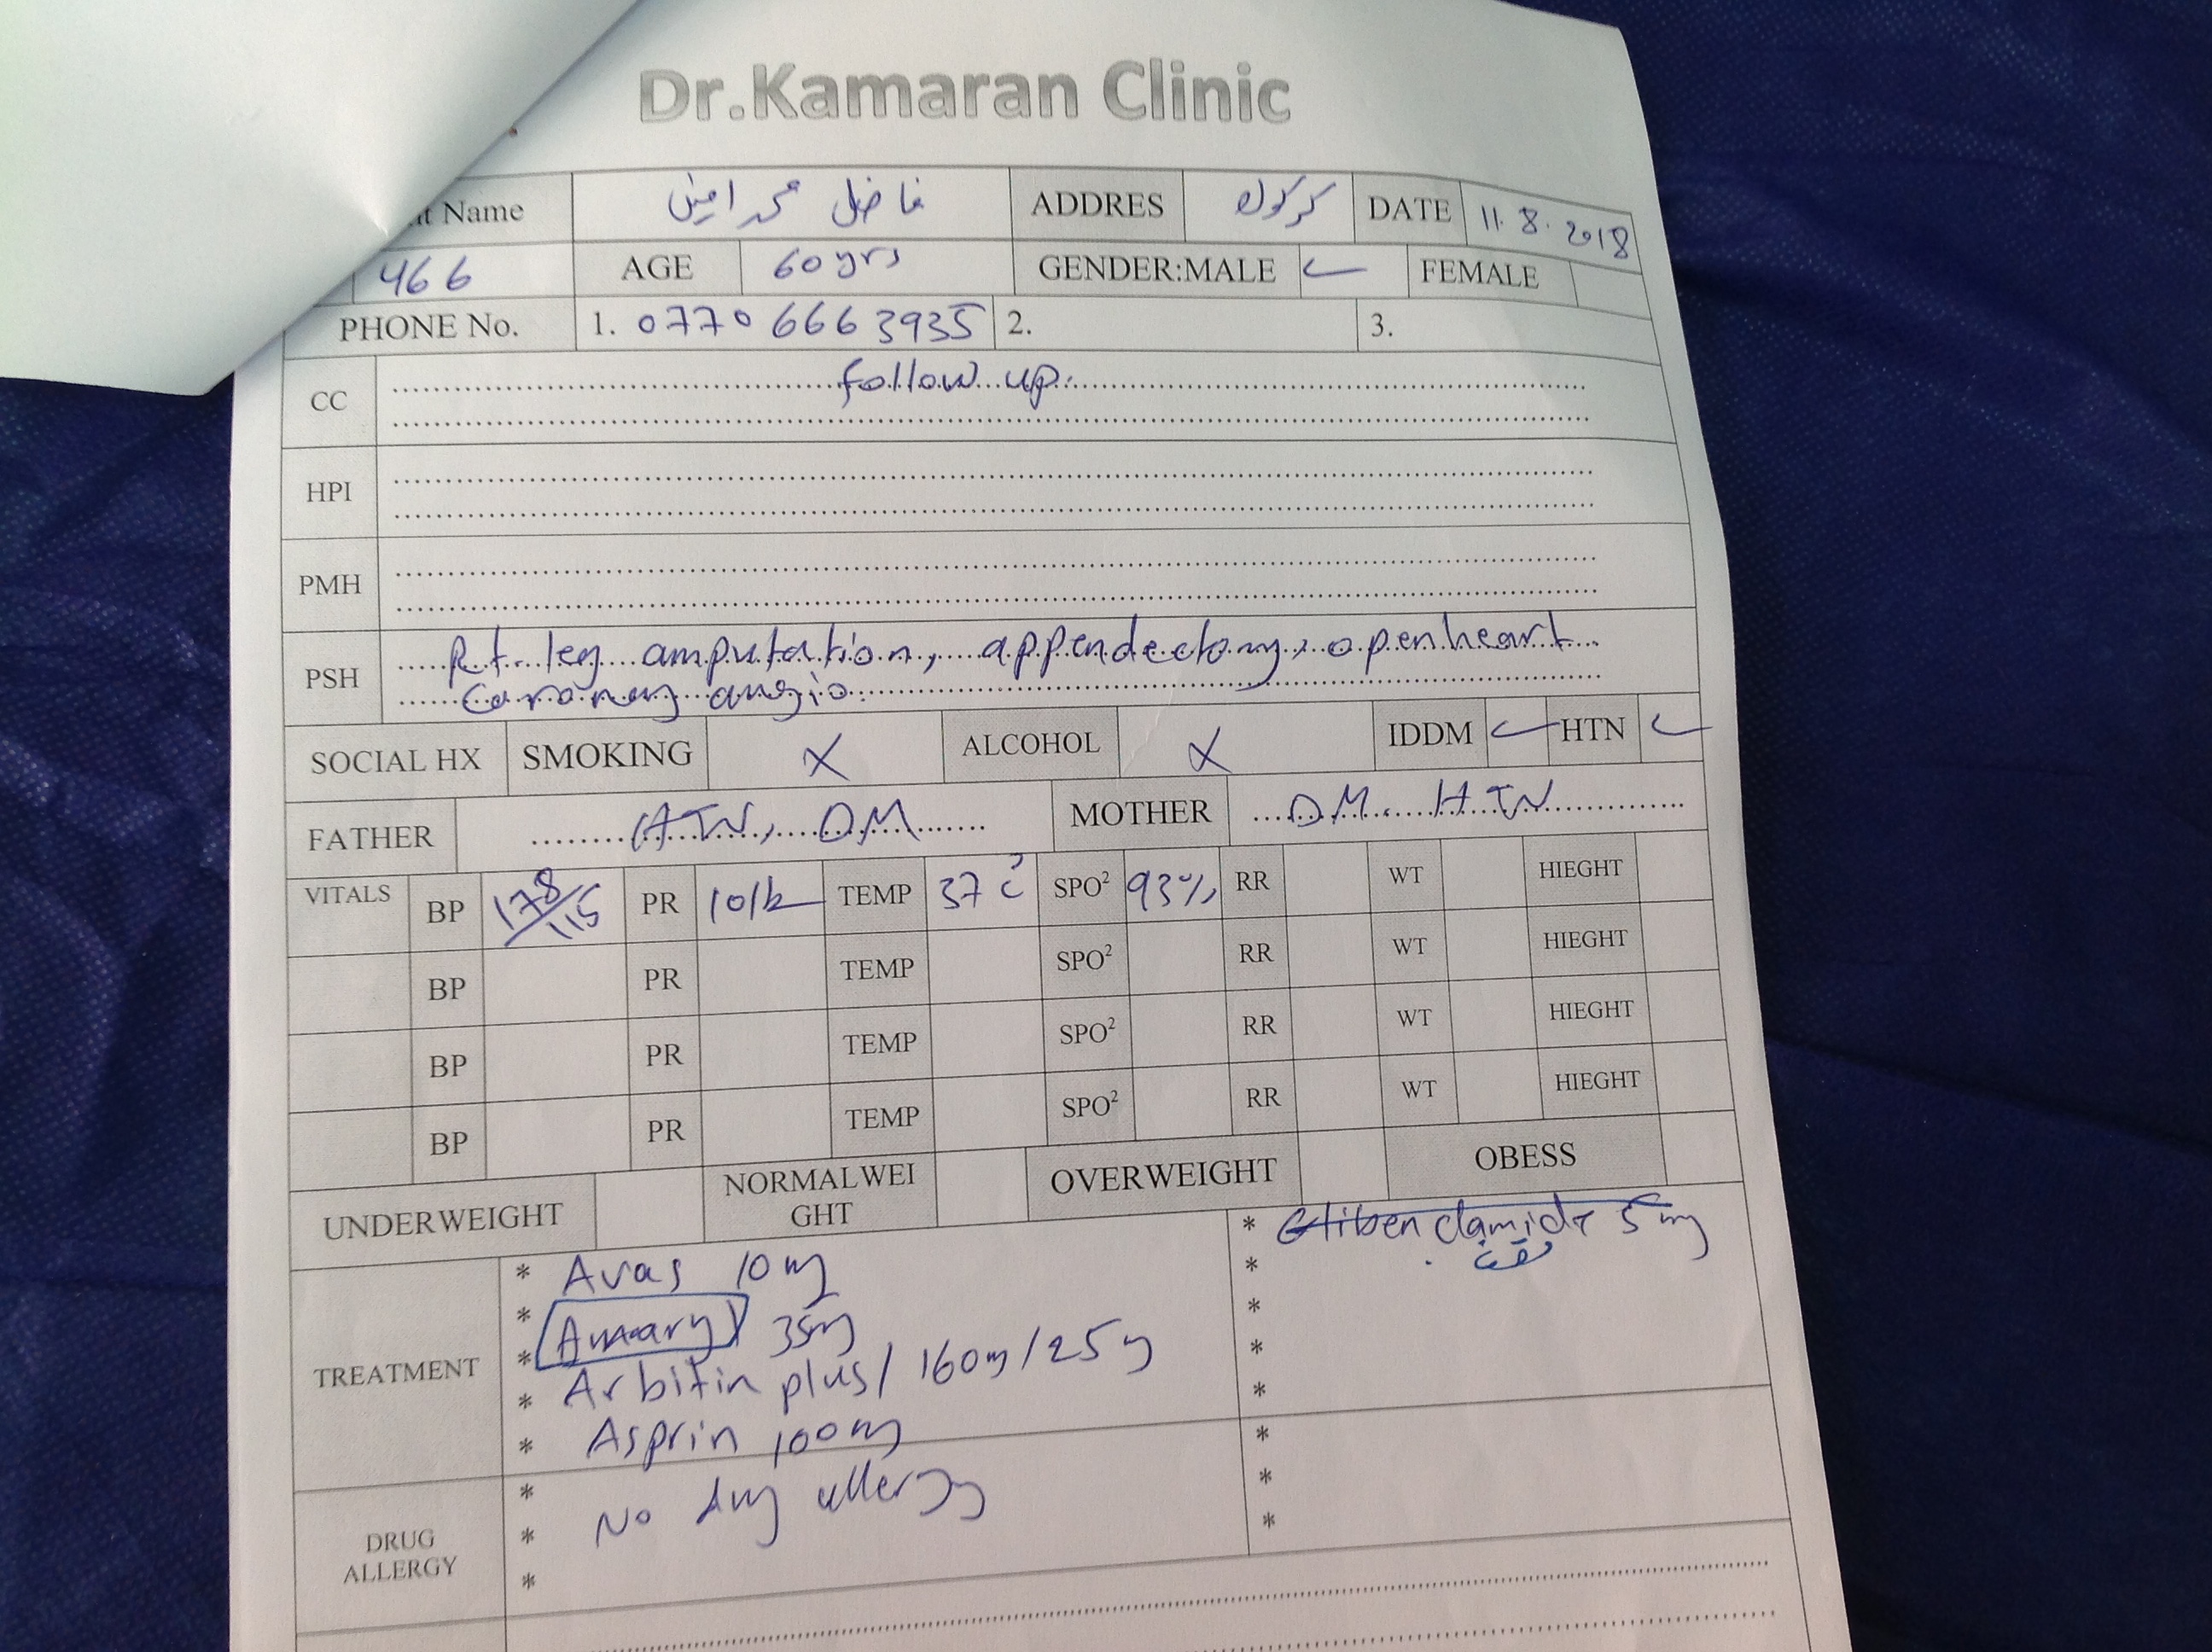 Dr.Kamaran Clinic
t Name فاضل محمد امين ADDRES كركوك DATE 11.8.2018
466 AGE 60 yrs GENDER:MALE ✓ FEMALE
PHONE No. 1. 0770 666 3935 2. 3.
CC follow up.
HPI
PMH
PSH Rt. leg amputation, appendectomy, open heart
coronary angio.
SOCIAL HX SMOKING X ALCOHOL X IDDM ✓ HTN ✓
FATHER HTN, DM MOTHER DM. HTN
VITALS BP 178/115 PR 101b TEMP 37 c° SPO² 93% RR WT HIEGHT
BP PR TEMP SPO² RR WT HIEGHT
BP PR TEMP SPO² RR WT HIEGHT
BP PR TEMP SPO² RR WT HIEGHT
UNDERWEIGHT NORMALWEI
GHT OVERWEIGHT OBESS
TREATMENT
* Avas 10 mg
* Amaryl 3mg
* Arbitin plus / 160mg / 25mg
* Asprin 100mg
* Glibenclamide 5 mg
DRUG
ALLERGY
* No drug allergy